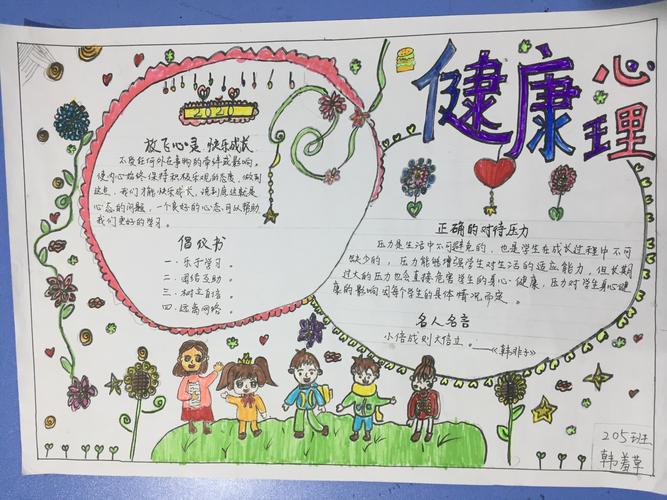 健康心理
2020
放飞心灵 快乐成长
不受任何外在事物的牵绊或影响。
使内心始终保持积极乐观的态度,做到
这点,我们才能快乐成长,说到底这就是
心态的问题,一个良好的心态可以帮助
我们更好的学习。
倡仪书
一、乐于学习。
二、团结互助
三、树立自信
四、远离网络。
正确的对待压力
压力是生活中不可避免的,也是学生在成长过程中不可
缺少的,压力能够增强学生对生活的适应能力,但长期
过大的压力也会直接危害学生的身心健康,压力对学生身心健
康的影响因每个学生的具体情况而定。
名人名言
小信成则大信立。——《韩非子》
205班
韩羞草